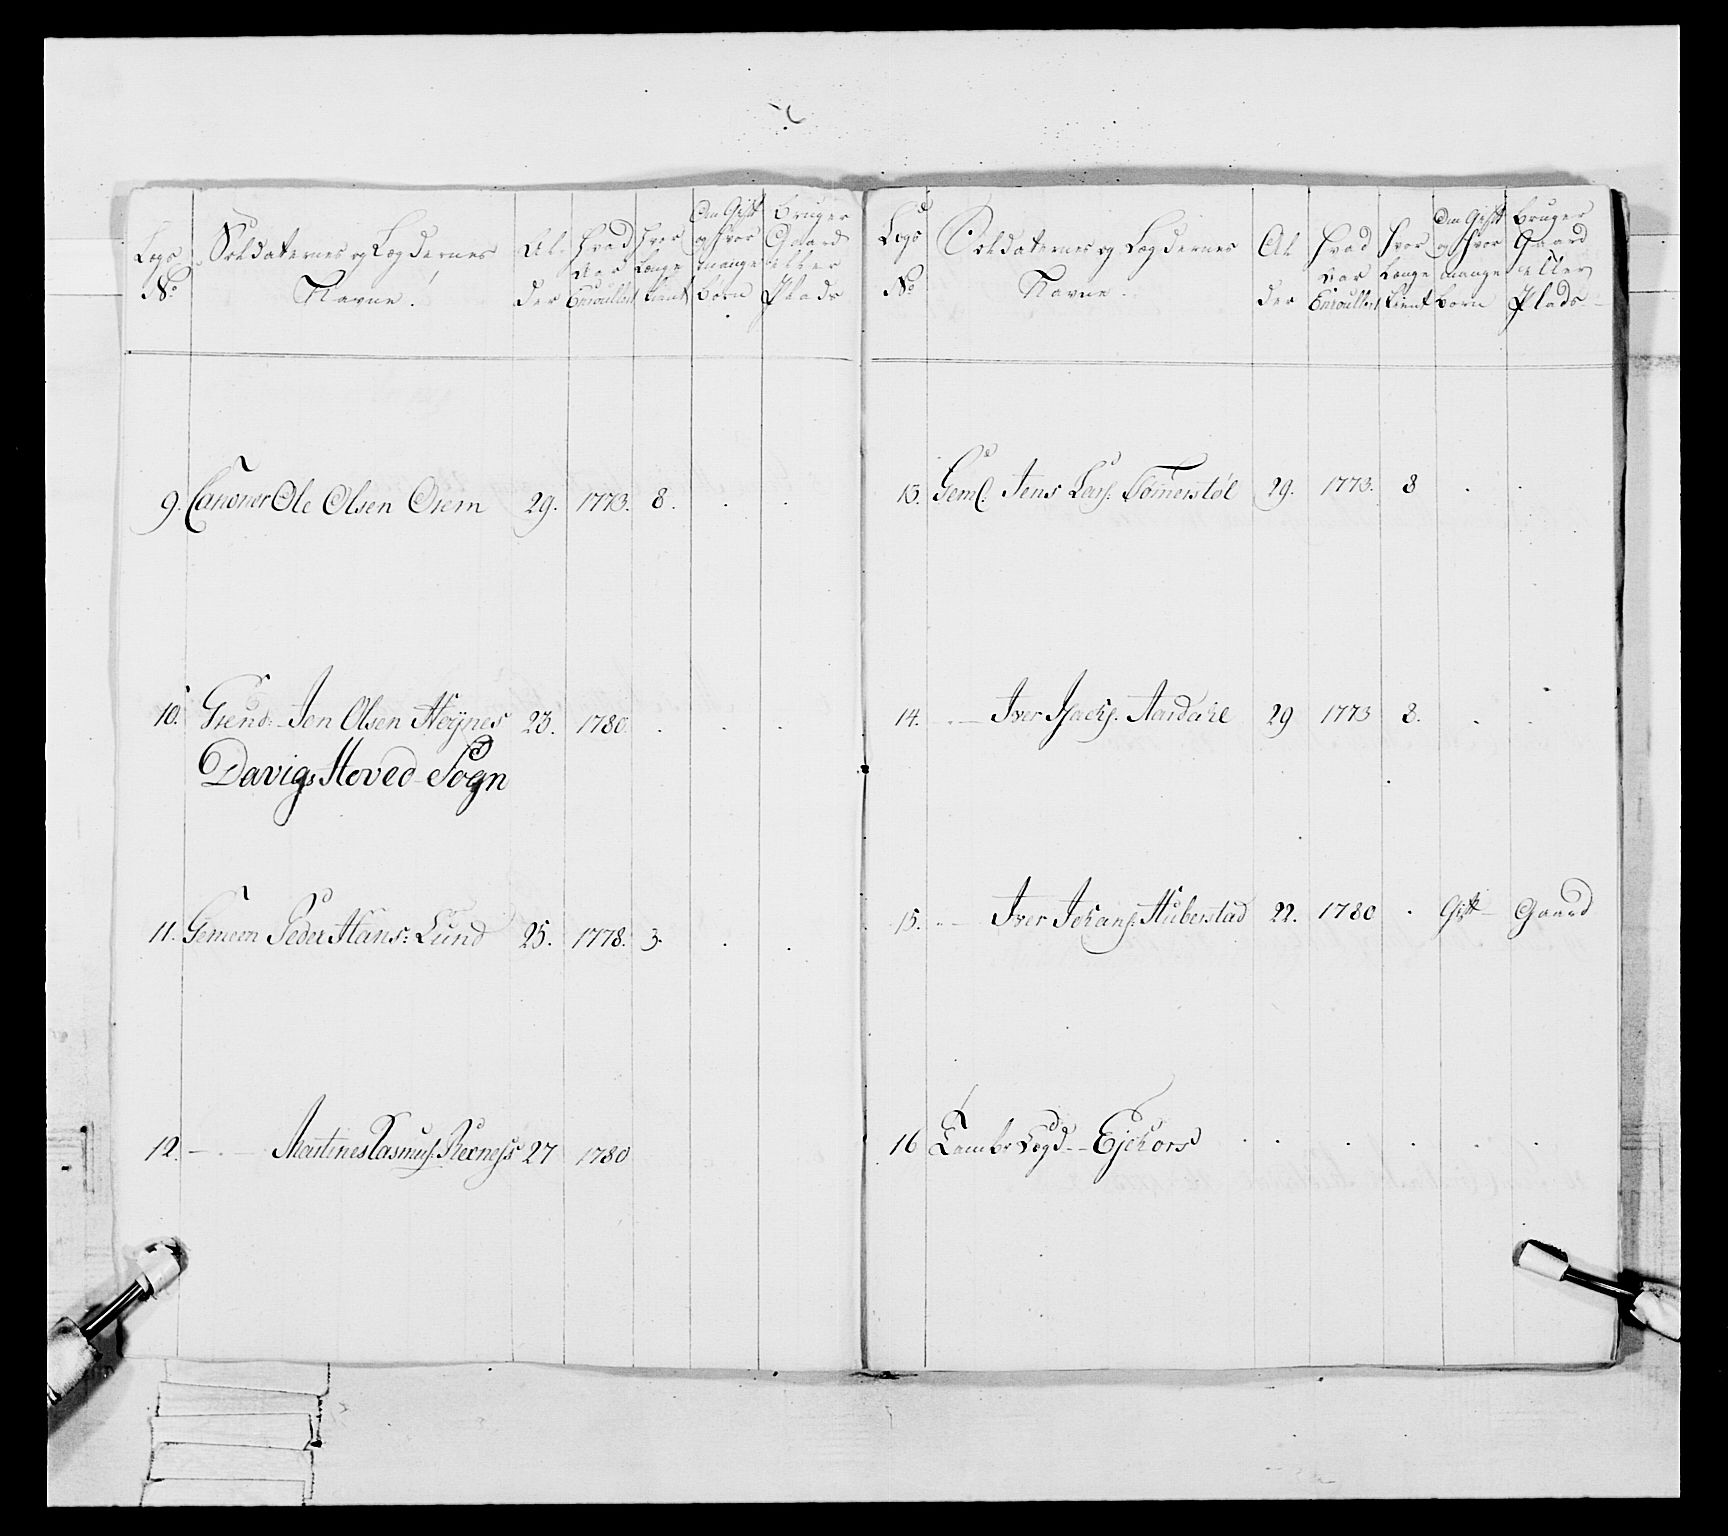 Legs No | Soldaternes og Lægdernes Navne | Al der | Hvad Aar Enroullert | Hvor Længe tient | Om Gift og Hvor mange Børn | Bruger Gaard eller Plads
9. Canoner Ole Olsen Orem 29. 1773. 8. . .
10. Grend: Jon Olsen Høÿnes 23. 1780. . . .
Davigs Hoved-Sogn
11. Gemeen Peder Hans: Lund 25. 1778. 3. . .
12. - . - Martines Rasmus. 27 1780
Legs No | Soldaternes og Lægdernes Navne. | Al der | Hvad Aar Enroullert | Hvor Længe tient | Om Gift og Hvor mange Børn | Bruger Gaard eller Plads
13. Geml. Jens Lars. Tømerstøl 29. 1773. 8 . .
14. - . - Iver Aardahl 29 1773 8. . .
15. - . - Iver Johans. Huberstad 22. 1780 . Gift - Gaard
16 Lægd - - Ejekors . . . . . .